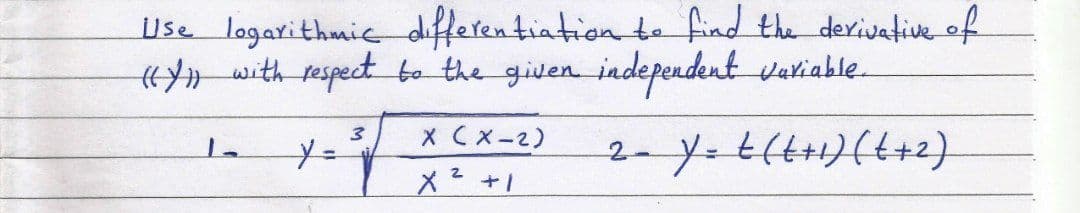 Use logarithmic differentiation to find the derivative of
((y)) with respect to the given independent variable.
1- y = ∛(x(x-2) / (x² + 1)) 2- y = t(t+1)(t+2)